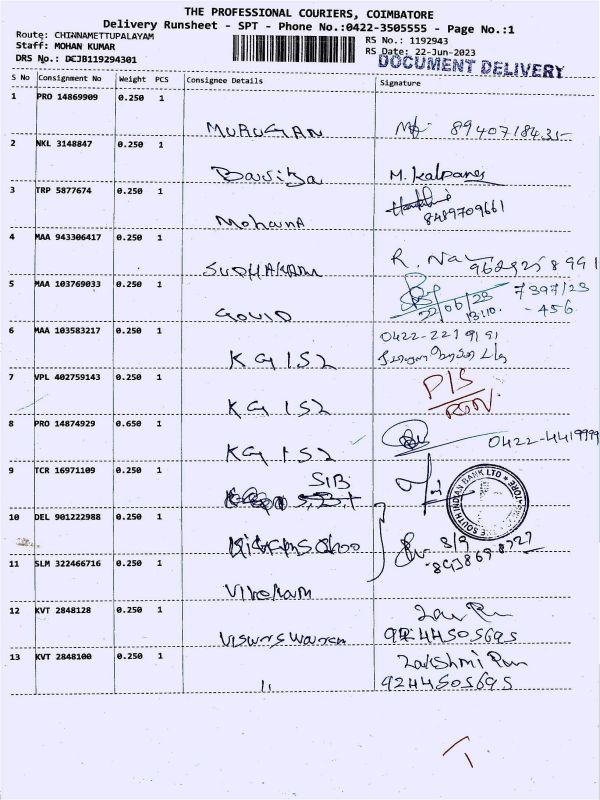 THE PROFESSIONAL COURIERS, COIMBATORE
Delivery Runsheet - SPT - Phone No.:0422-3505555 - Page No.:1
Route: CHINNAMETTUPALAYAM
RS No.: 1192943
Staff: MOHAN KUMAR
RS Date: 22-Jun-2023
DRS No.: DCJB119294301
DOCUMENT DELIVERY
S No Consignment No Weight PCS Consignee Details Signature
1 PRO 14869909 0.250 1
MURUGAN 8940718435-
2 NKL 3148847 0.250 1
M. Kalpana
3 TRP 5877674 0.250 1
MohanA 8489709661
4 MAA 943306417 0.250 1
SUDHAKARAN R.
5 MAA 103769033 0.250 1 7397/23
GOVID 22/06/23 13:10. - 456
6 MAA 103583217 0.250 1 0422-2219191
KG ISL
7 VPL 402759143 0.250 1 D/S
KG ISL RON.
8 PRO 14874929 0.650 1
KG ISL 0422-4419999
9 TCR 16971109 0.250 1
SIB
THE SOUTH INDIAN BANK LTD
10 DEL 901222988 0.250 1
S/9
11 SLM 322466716 0.250 1
VIKRAM
12 KVT 2848128 0.250 1
Viswas waran 9244505695
13 KVT 2848100 0.250 1 Lakshmi
11 9244505695
T.